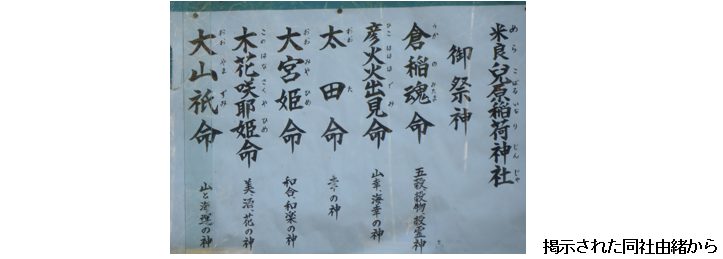 米良兒原稲荷神社
めら こばる いなり じんじゃ
御祭神
倉稲魂命
うかのみたま
五穀穀物穀霊神
彦火火出見命
ひこほほでみ
山幸、海幸の神
太田命
おおた
の神
大宮姫命
おおみやひめ
和合、和楽の神
木花咲耶姫命
このはなさくやひめ
美、酒、花の神
大山祇命
おおやまずみ
山と海運の神
掲示された同社由緒から